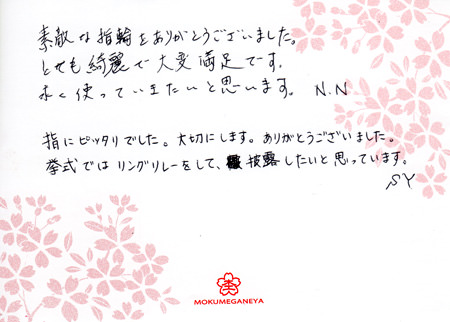 素敵な指輪をありがとうございました。
とても綺麗で大変満足です。
永く使っていきたいと思います。 N.N
指にピッタリでした。大切にします。ありがとうございました。
挙式ではリングリレーをして、披露したいと思っています。
SY
MOKUMEGANEYA